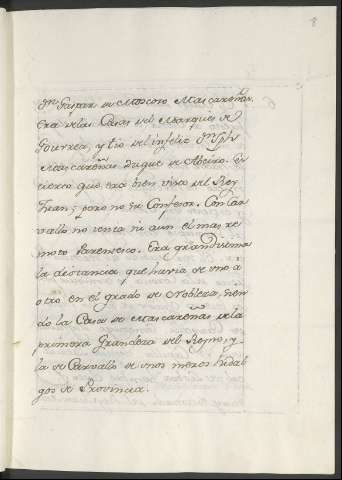 8
Dn. Gaspar de Moscoso Mascareñas.
Era de las Casas del Marques de
Gouvea, y tio del infeliz Dn. Jph
Mascareñas Duque de Abeiro. Es
cierto que era bien visto del Rey
Juan 5º pero no su Confesor. Con Car
vallo no tenia ni aun el mas re
moto Parentesco. Era grandissima
la distancia, que havia de uno a
otro en el grado de Nobleza, sien
do la Casa de Mascareñas de la
primera Grandeza del Reyno, y
la de Carvallo de unos meros hidal
gos de Provincia.